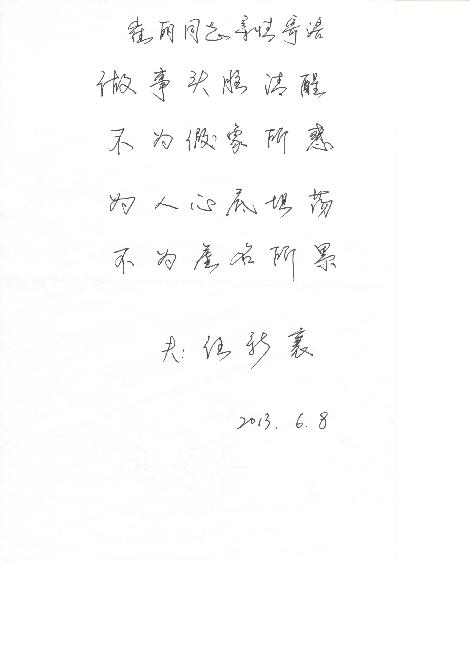 崔丽同志亲情寄语
做事头脑清醒
不为假象所惑
为人心底坦荡
不为虚名所累
夫:任新襄
2013.6.8